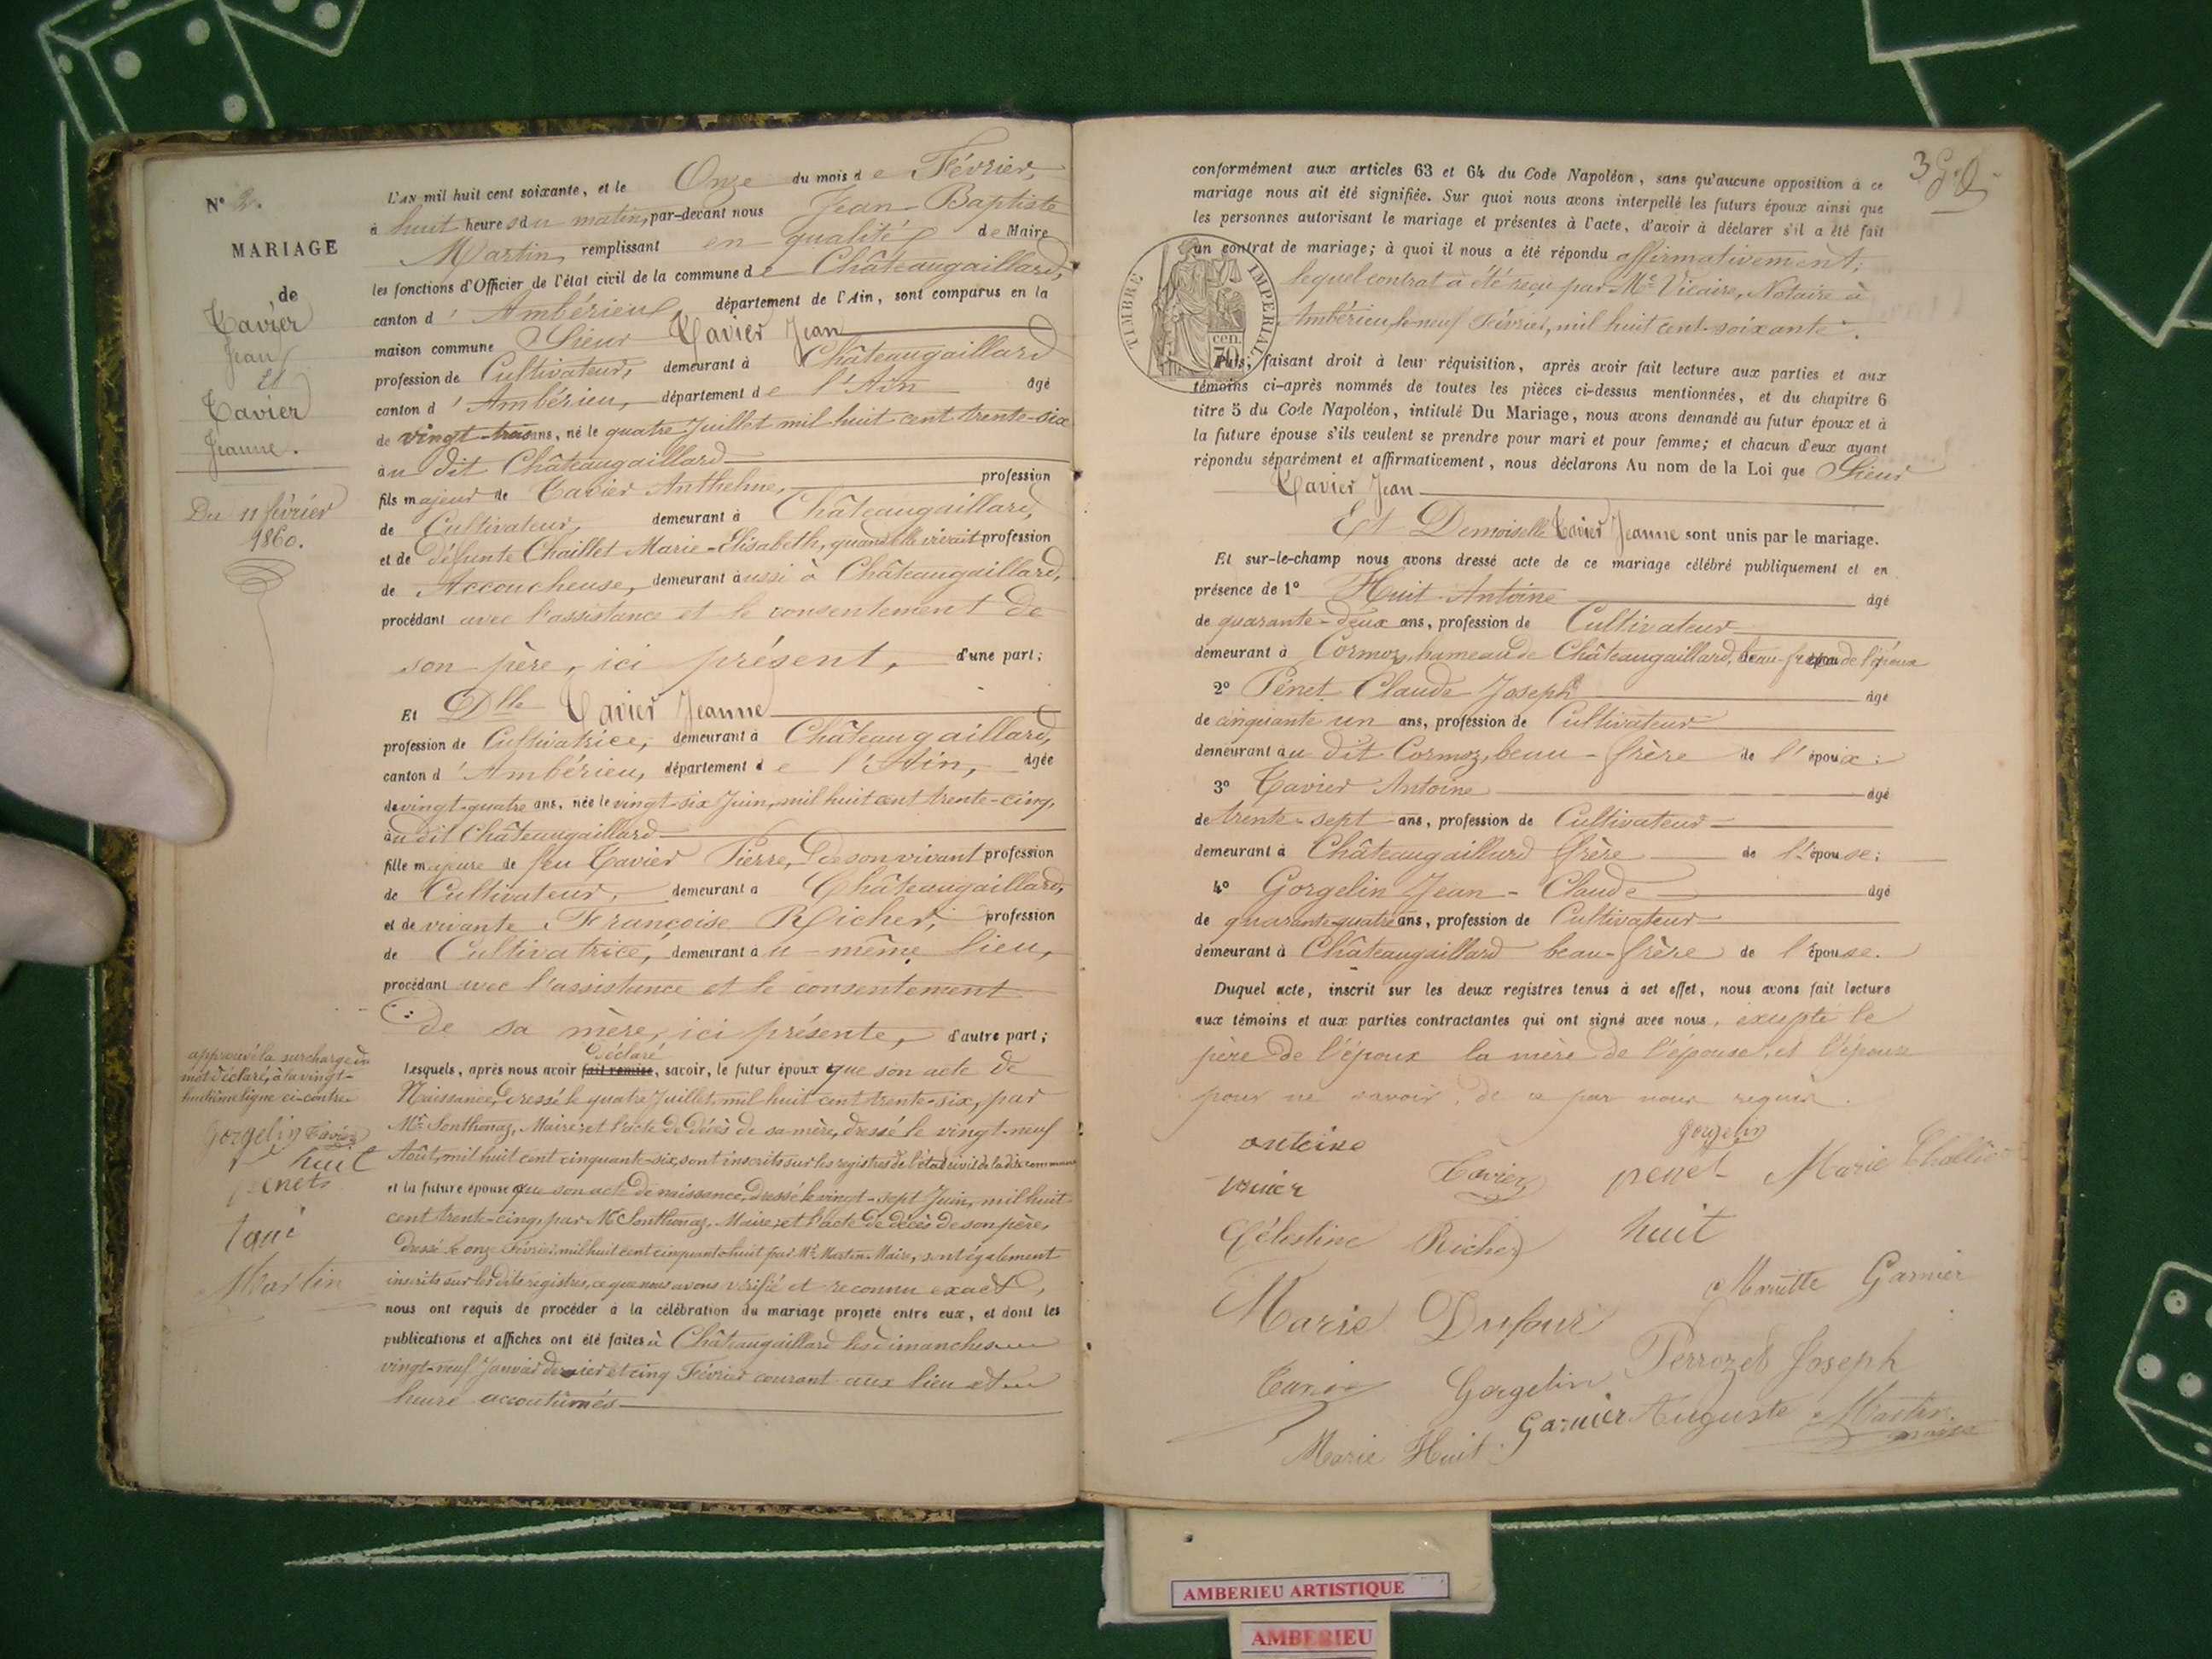 N° 2.
MARIAGE
de
Tavier
Jean
Et
Tavier
Jeanne.
Du 11 février
1860.
L'AN mil huit cent soixante, et le Onze du mois de Février,
à huit heures du matin, par-devant nous Jean Baptiste
Martin, remplissant en qualité de Maire
les fonctions d'Officier de l'état civil de la commune de Châteaugaillard,
canton d'Ambérieu, département de l'Ain, sont comparus en la
maison commune Sieur Tavier Jean
profession de Cultivateur, demeurant à Châteaugaillard
canton d'Ambérieu, département de l'Ain âgé
de vingt-trois ans, né le quatre Juillet mil huit cent trente-six
au dit Châteaugaillard
fils majeur de Tavier Anthelme, profession
de Cultivateur, demeurant à Châteaugaillard,
et de défunte Chaillet Marie-Elisabeth, quand elle vivait profession
de Accoucheuse, demeurant aussi à Châteaugaillard,
procédant avec l'assistance et le consentement de
son père, ici présent, d'une part;
Et Dlle Tavier Jeanne
profession de Cultivatrice, demeurant à Châteaugaillard,
canton d'Ambérieu, département de l'Ain, âgée
de vingt-quatre ans, née le vingt-six Juin, mil huit cent trente-cinq,
au dit Châteaugaillard
fille majeure de feu Tavier Pierre, de son vivant profession
de Cultivateur, demeurant à Châteaugaillard,
et de vivante Françoise Richer, profession
de Cultivatrice, demeurant au même lieu,
procédant avec l'assistance et le consentement
de sa mère, ici présente, d'autre part;
Déclaré
Lesquels, après nous avoir fait remise, savoir, le futur époux que son acte de
Naissance, dressé le quatre Juillet, mil huit cent trente-six, par
Mr. Sonthonaz, Maire, et l'acte de décès de sa mère, dressé le vingt-neuf
Août, mil huit cent cinquante-six, sont inscrits sur les registres de l'état civil de la dite commune
et la future épouse que son acte de naissance, dressé le vingt-sept Juin, mil huit
cent trente-cinq, par Mr Sonthonaz, Maire, et l'acte de décès de son père,
dressé le onze Février, mil huit cent cinquante huit par Mr. Martin, Maire, sont également
inscrits sur les dits registres, ce que nous avons vérifié et reconnu exact,
nous ont requis de procéder à la célébration du mariage projeté entre eux, et dont les
publications et affiches ont été faites à Châteaugaillard les dimanches
vingt-neuf Janvier dernier et cinq Février courant aux lieu et
heure accoutumés
approuvé la surcharge du
mot déclaré, à la vingt-
huitième ligne ci-contre
Gorgelin Tavier
huit
penet
Martin
3
conformément aux articles 63 et 64 du Code Napoléon, sans qu'aucune opposition à ce
mariage nous ait été signifiée. Sur quoi nous avons interpellé les futurs époux ainsi que
les personnes autorisant le mariage et présentes à l'acte, d'avoir à déclarer s'il a été fait
un contrat de mariage; à quoi il nous a été répondu affirmativement;
lequel contrat a été reçu par Me. Vicaire, Notaire à
Ambérieu, le neuf Février, mil huit cent soixante.
TIMBRE IMPERIAL
cen.
70
Puis, faisant droit à leur réquisition, après avoir fait lecture aux parties et aux
témoins ci-après nommés de toutes les pièces ci-dessus mentionnées, et du chapitre 6
titre 5 du Code Napoléon, intitulé Du Mariage, nous avons demandé au futur époux et à
la future épouse s'ils veulent se prendre pour mari et pour femme; et chacun d'eux ayant
répondu séparément et affirmativement, nous déclarons Au nom de la Loi que Sieur
Tavier Jean
Et Demoiselle Tavier Jeanne sont unis par le mariage.
Et sur-le-champ nous avons dressé acte de ce mariage célébré publiquement et en
présence de 1° Huit Antoine âgé
de quarante-deux ans, profession de Cultivateur
demeurant à Cormoz, hameau de Châteaugaillard, beau-frère de l'époux
2° Penet Claude Joseph âgé
de cinquante un ans, profession de Cultivateur
demeurant au dit Cormoz, beau-frère de l'époux:
3° Tavier Antoine âgé
de trente-sept ans, profession de Cultivateur
demeurant à Châteaugaillard frère de l'épouse:
4° Gorgelin Jean-Claude âgé
de quarante-quatre ans, profession de Cultivateur
demeurant à Châteaugaillard beau-frère de l'épouse.
Duquel acte, inscrit sur les deux registres tenus à cet effet, nous avons fait lecture
aux témoins et aux parties contractantes qui ont signé avec nous, excepté le
père de l'époux la mère de l'épouse, et l'épouse
pour ne savoir, de ce par nous requis.
antoine gorgelin
Tavier penet Marie
Célestine Richer huit
Mariette Garnier
Marie Dufour
Perrozet Joseph
Gorgelin
Garnier Auguste Martin
maire
Marie Huit
AMBERIEU ARTISTIQUE
AMBERIEU